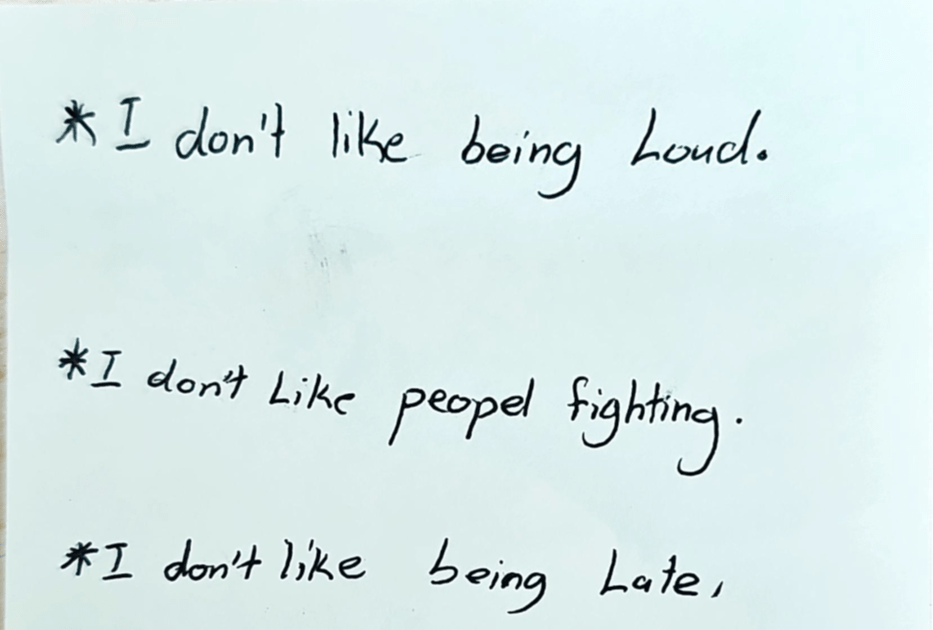 *I don't like being Loud.
*I don't Like peopel fighting.
*I don't like being Late,